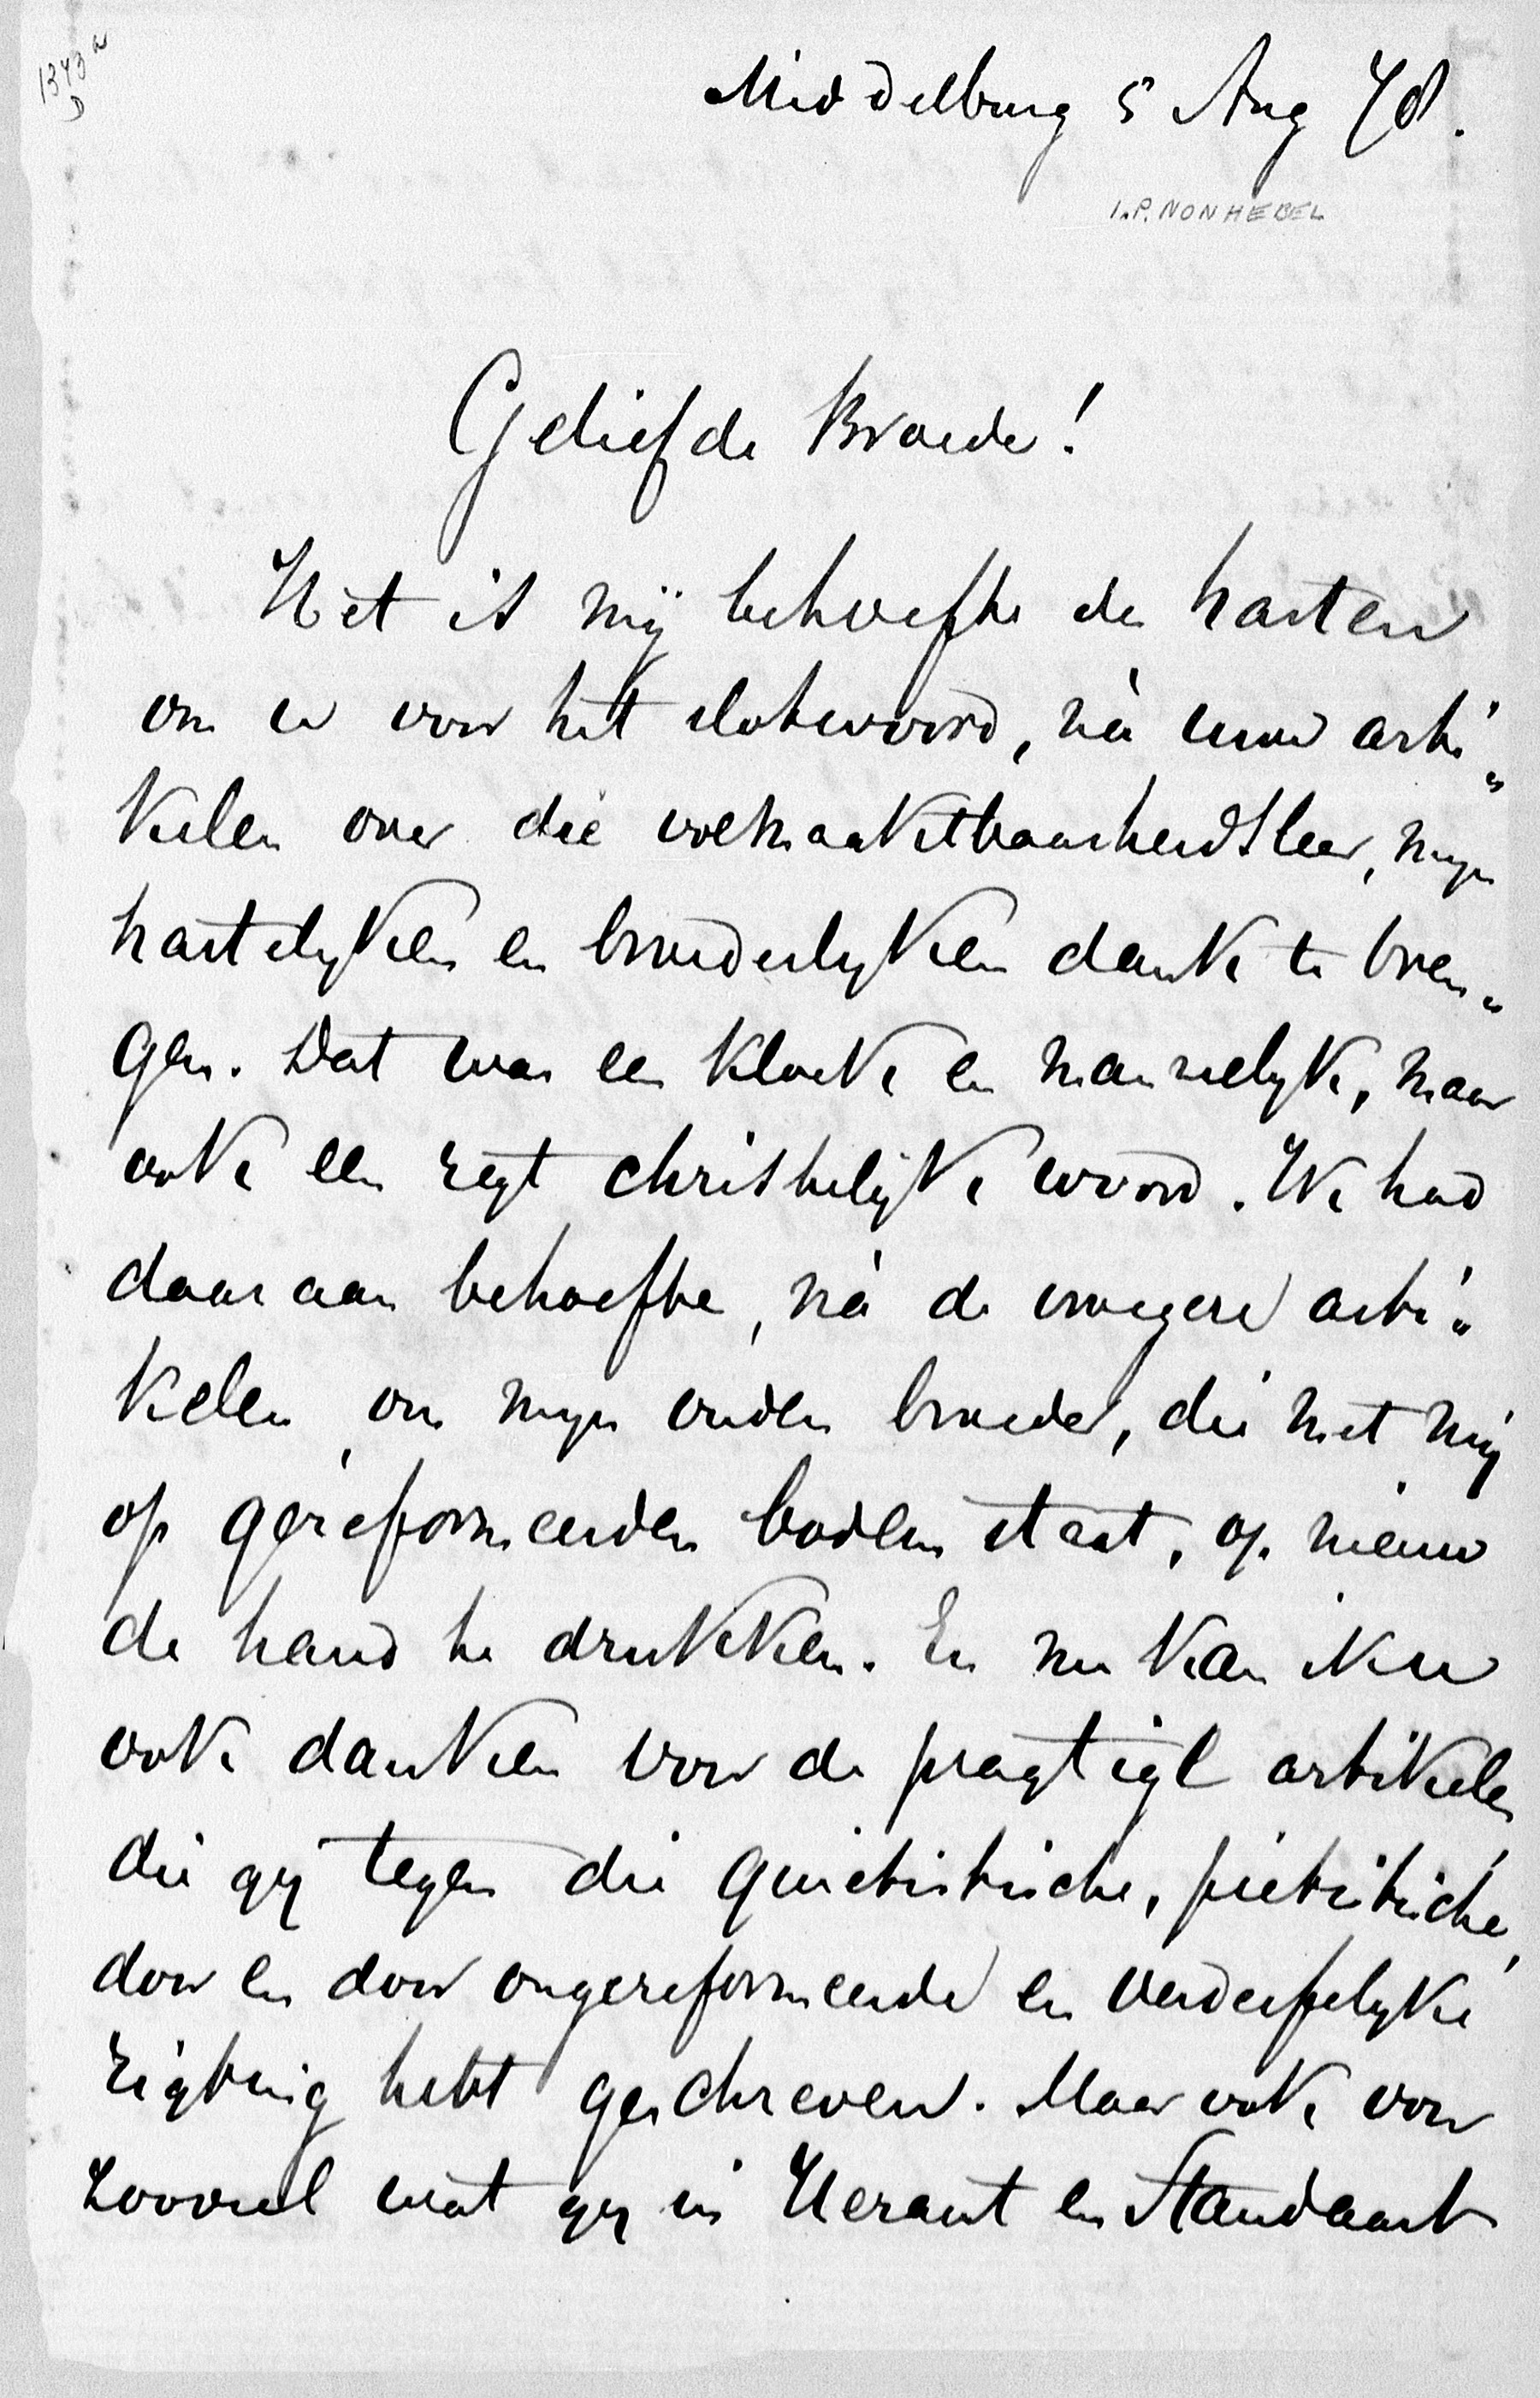 1343a
D
Middelburg 5 Aug 78.
I.P. NONHEBEL
Geliefde Broeder!
Het is mij behoefte des harten
om u voor het slotwoord, nà uwe arti„
kelen over die volmaaktbaarheidsleer, mijn
hartelijken en broederlijken dank te bren„
gen. Dat was een kloek en mannelijk, maar
ook een regt christelijk woord. Ik had
daaraan behoefte, nà de vroegere arti„
kelen, om mijn ouden broeder, die met mij
op gereformeerden bodem staat, op nieuw
de hand te drukken. En nu kan ik u
ook danken voor de pragtige artikelen
die gij tegen die quietistische, piëtistische,
door en door ongereformeerde en verderfelijke
rigting hebt geschreven. Maar ook voor
zooveel wat gij in Heraut en Standaart